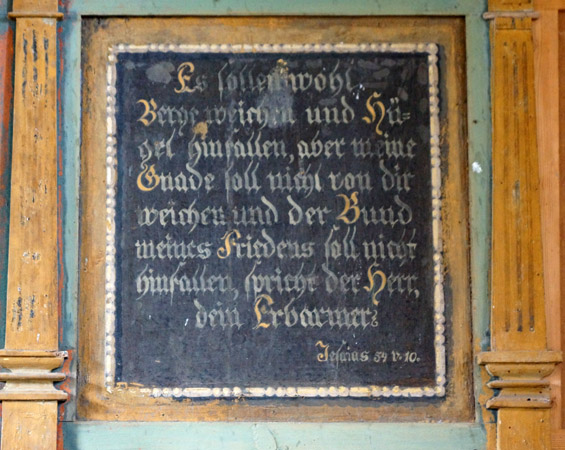 Es sollen wohl
Berge weichen und Hü-
gel hinfallen, aber meine
Gnade soll nicht von dir
weichen und der Bund
meines Friedens soll nicht
hinfallen, spricht der Herr,
dein Erbarmer
Jesaias 54 v. 10.